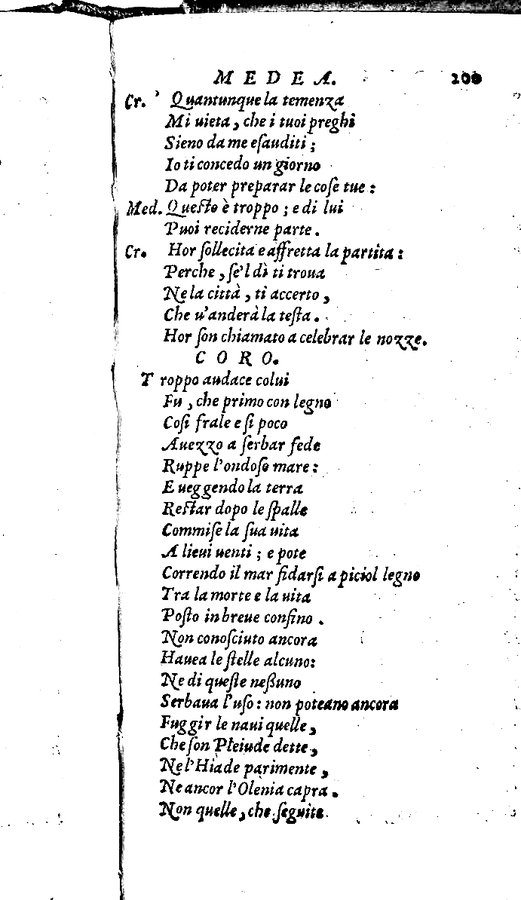 MEDEA. 200
Cr. Quantunque la temenza
Mi uieta, che i tuoi preghi
Sieno da me eſauditi;
Io ti concedo un giorno
Da poter preparar le coſe tue:
Med. Queſto è troppo; e di lui
Puoi reciderne parte.
Cr. Hor ſollecita e affretta la partita:
Perche, ſe'l dì ti troua
Ne la città, ti accerto,
Che u'anderà la teſta.
Hor ſon chiamato a celebrar le nozze.
CORO.
Troppo audace colui
Fu, che primo con legno
Coſi frale e ſi poco
Auezzo a ſerbar fede
Ruppe l'ondoſo mare:
E ueggendo la terra
Reſtar dopo le ſpalle
Commiſe la ſua uita
A lieui uenti; e pote
Correndo il mar fidarſi a picciol legno
Tra la morte e la uita
Poſto in breue confino.
Non conoſciuto ancora
Hauea le ſtelle alcuno:
Ne di queſte neßuno
Serbaua l'uſo: non poteano ancora
Fuggir le naui quelle,
Che ſon Pleiade dette,
Ne l'Hiade parimente,
Ne ancor l'Olenia capra.
Non quelle, che ſeguite